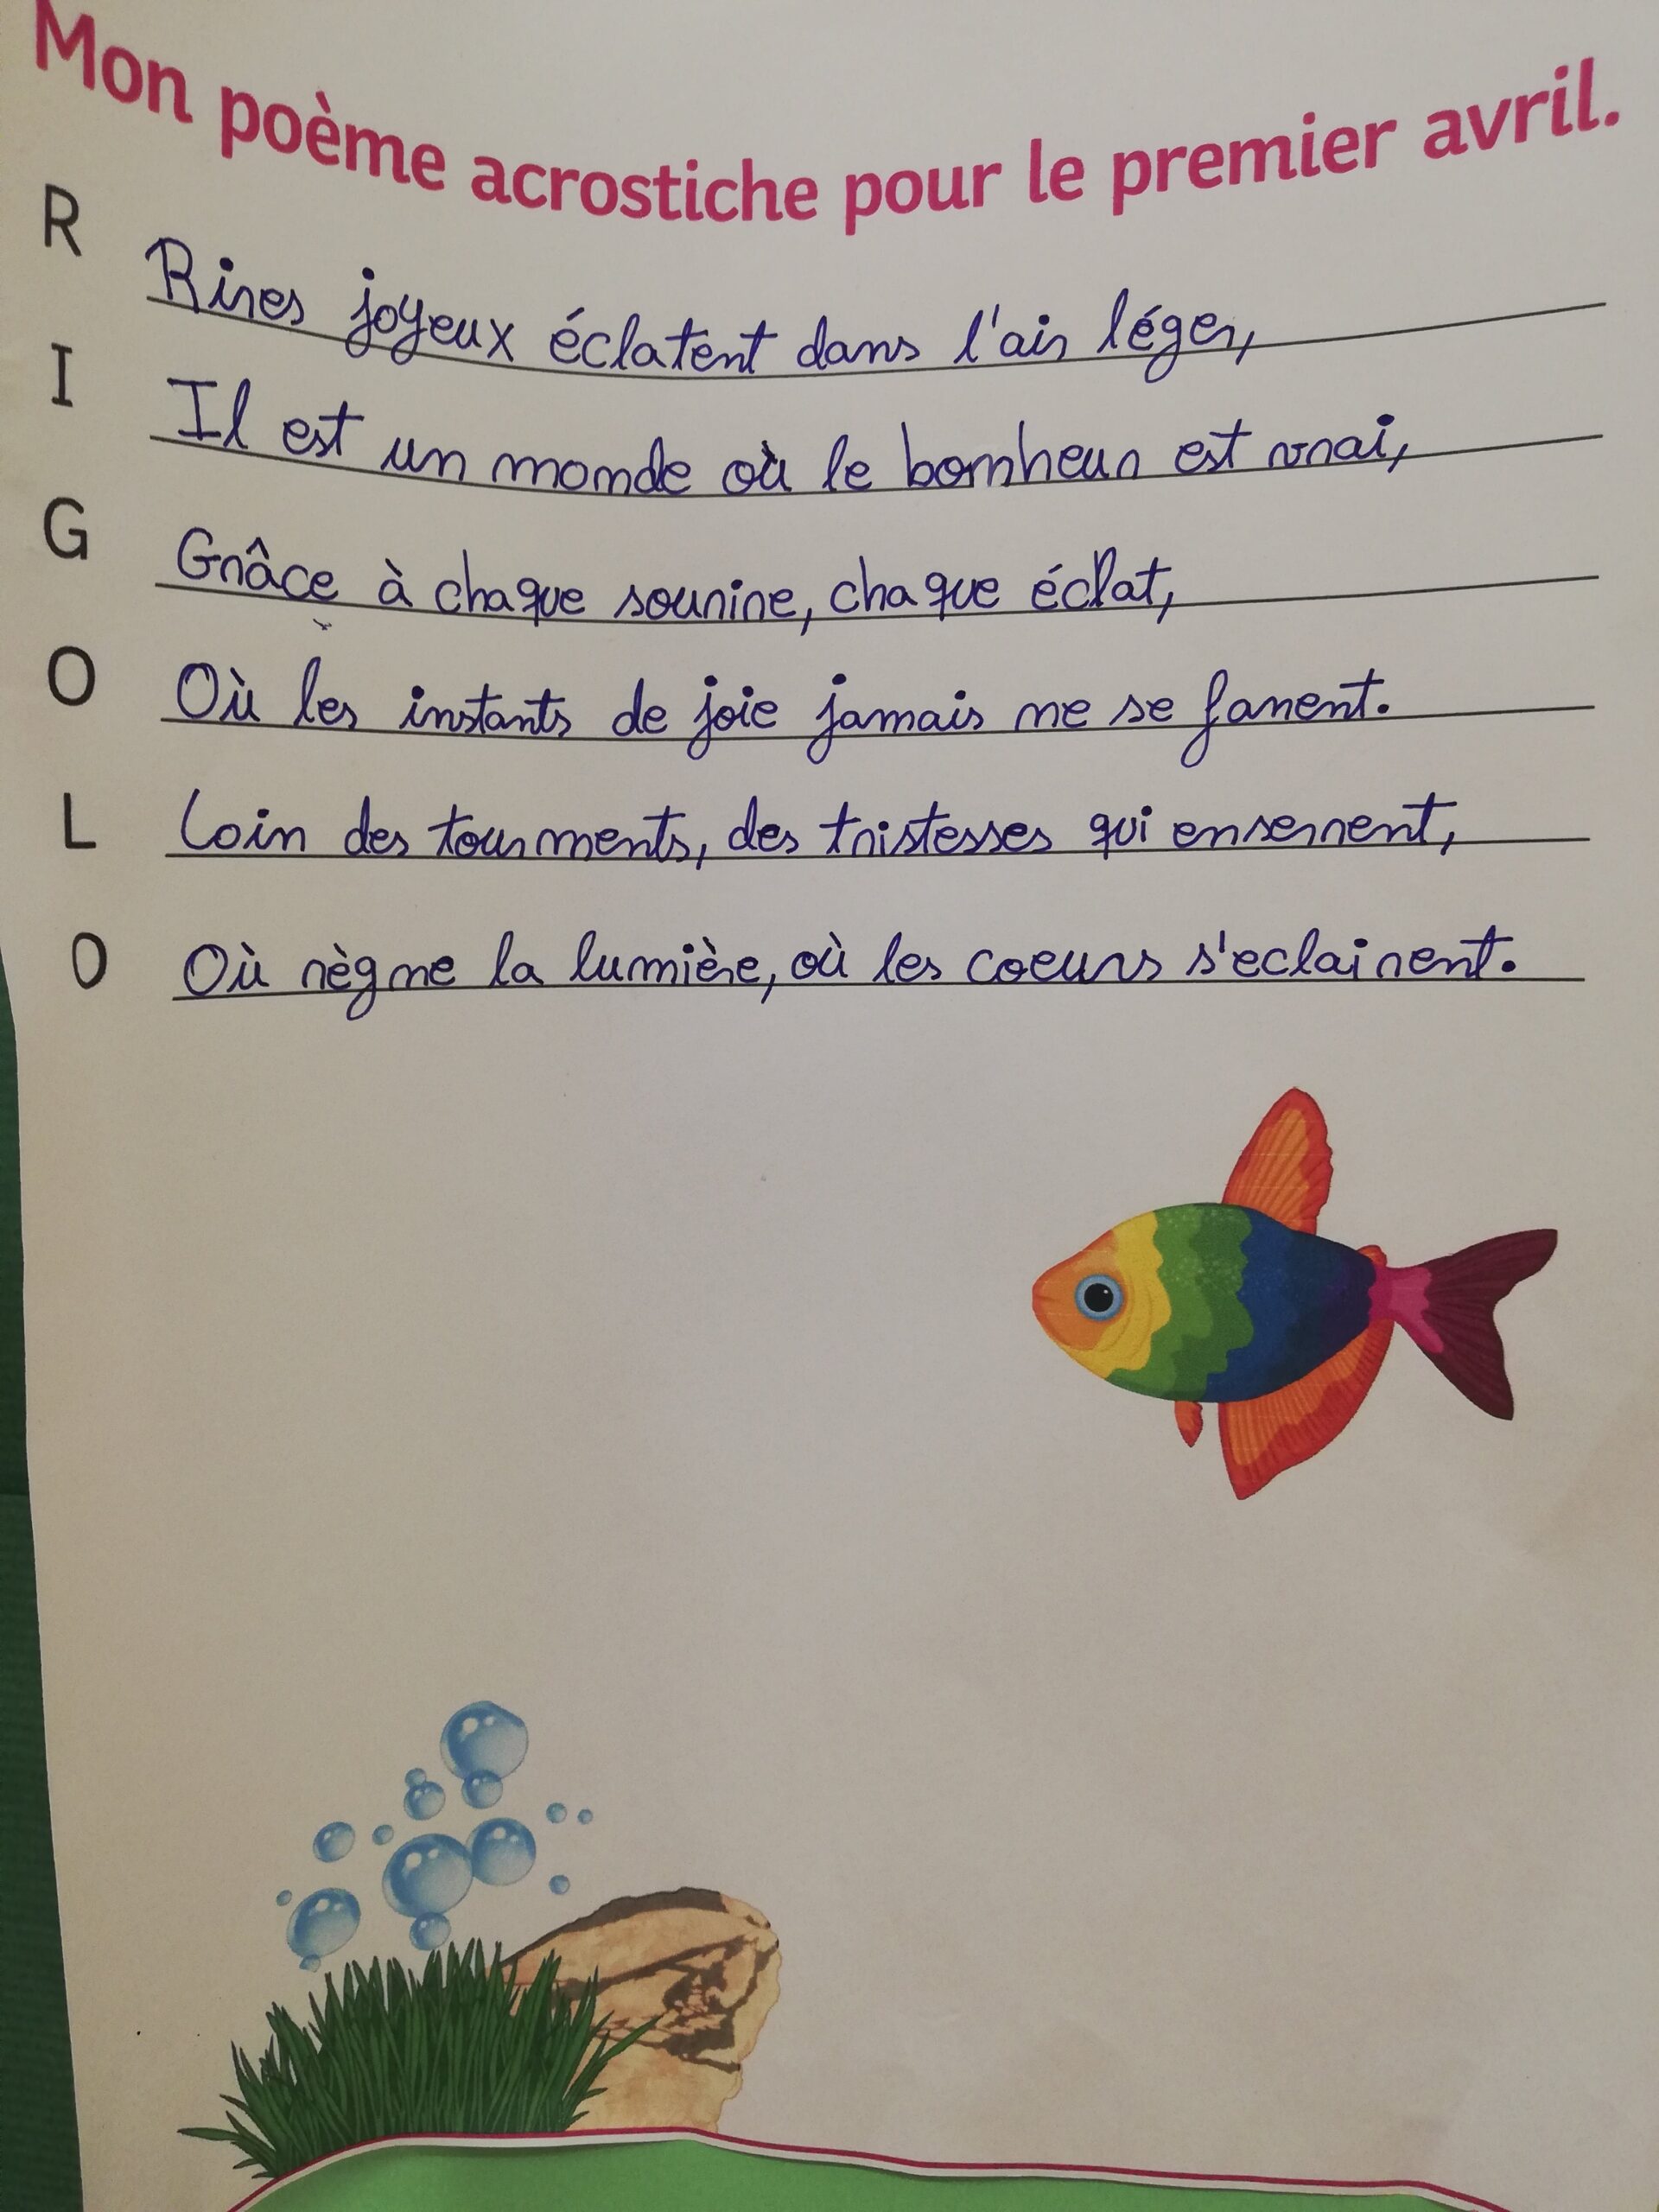 Mon poème acrostiche pour le premier avril.
R Rires joyeux éclatent dans l'air léger,
I Il est un monde où le bonheur est vrai,
G Grâce à chaque sourire, chaque éclat,
O Où les instants de joie jamais ne se fanent.
L Loin des tourments, des tristesses qui enserrent,
O Où règne la lumière, où les coeurs s'eclairent.